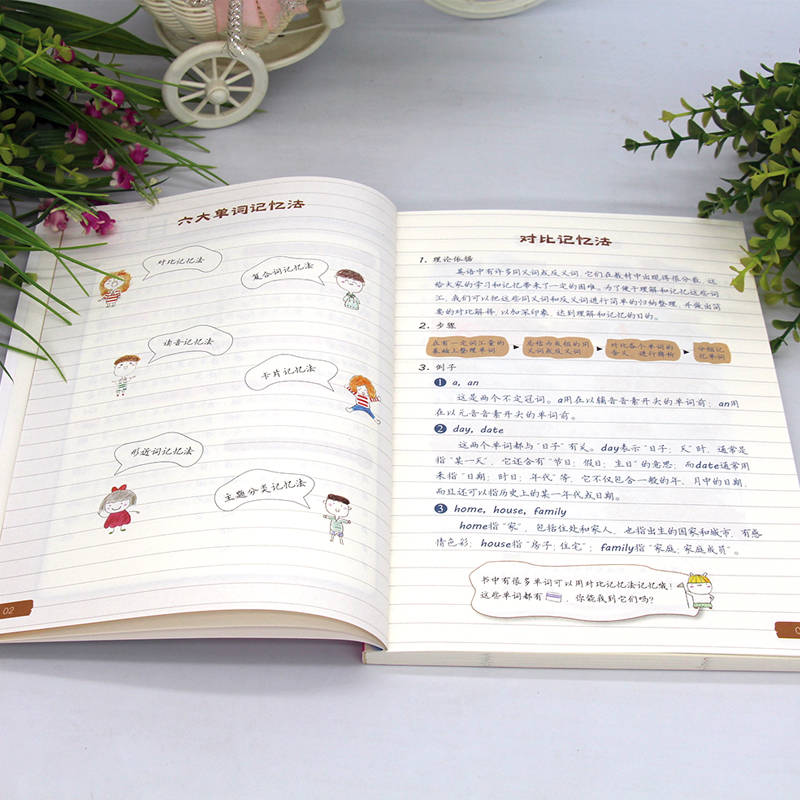 六大单词记忆法
对比记忆法
复合词记忆法
读音记忆法
卡片记忆法
形近词记忆法
主题分类记忆法
02
对比记忆法
1. 理论依据
英语中有许多同义词或反义词，它们在教材中出现得很分散，这
给大家的学习和记忆带来了一定的困难。为了便于理解和记忆这些词
汇，我们可以把这些同义词和反义词进行简单的归纳整理，并做出简
要的对比解释，以加深印象，达到理解和记忆的目的。
2. 步骤
在有一定词汇量的
基础上整理单词
总结为成组的同
义词或反义词
对比各个单词的
含义，进行辨析
分组记
忆单词
3. 例子
1 a, an
这是两个不定冠词。a用在以辅音音素开头的单词前；an用
在以元音音素开头的单词前。
2 day, date
这两个单词都与“日子”有关。day表示“日子；天”时，通常是
指“某一天”，它还含有“节日；假日；生日”的意思；而date通常用
来指“日期；时日；年代”等，它不仅包含一般的年、月中的日期，
而且还可以指历史上的某一年代或日期。
3 home, house, family
home指“家”，包括住处和家人，也指出生的国家和城市，有感
情色彩；house指“房子；住宅”；family指“家庭；家庭成员”。
书中有很多单词可以用对比记忆法记忆哦！
这些单词都有 ，你能找到它们吗？